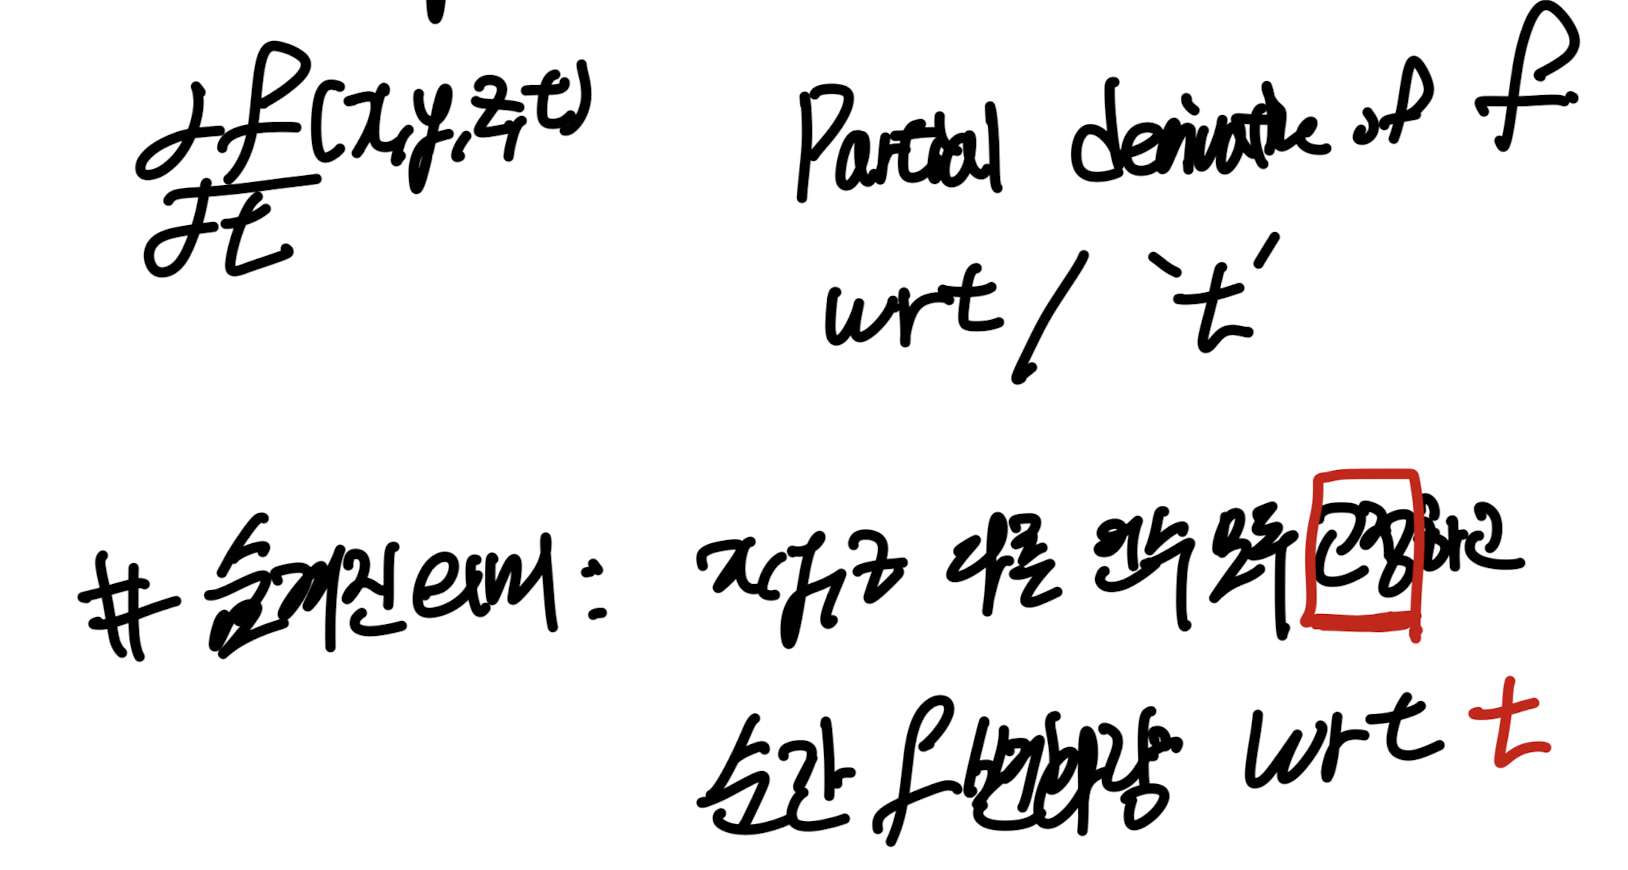 ∂f/∂t (x,y,z,t) Partial derivative of f
wrt / 't'
# 숨겨진 의미 : x,y,z 다른 변수 모두 고정하고
순간 f 변화량 wrt t